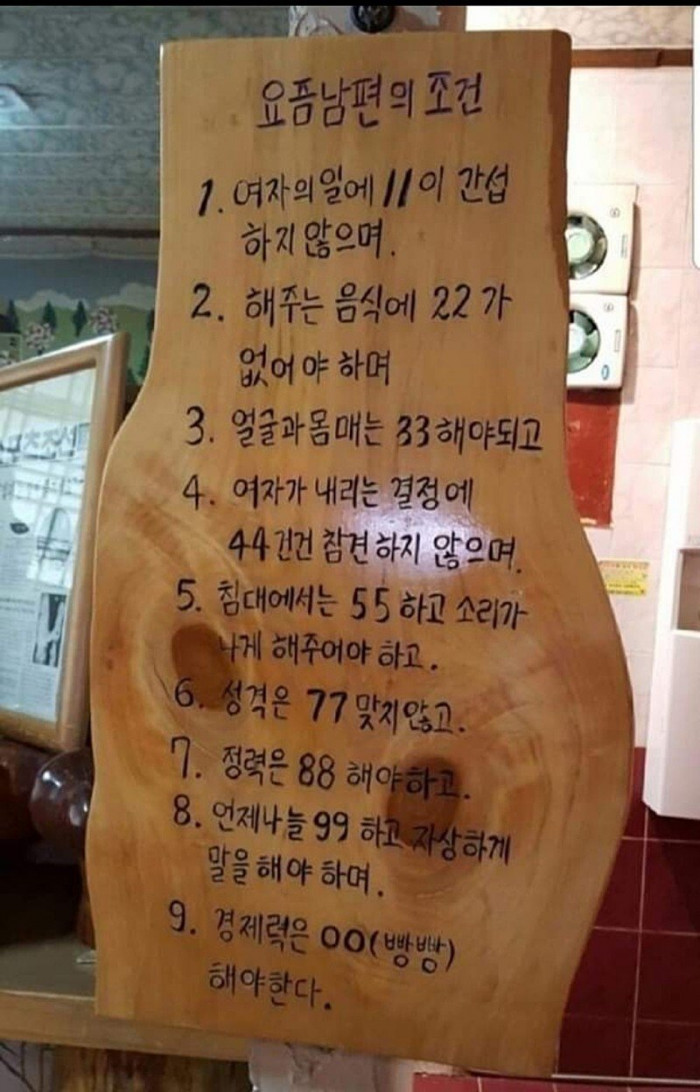 요즘남편의 조건
1. 여자의일에 11이 간섭
하지 않으며.
2. 해주는 음식에 22가
없어야 하며
3. 얼굴과몸매는 33해야되고
4. 여자가 내리는 결정에
44건건 참견하지 않으며.
5. 침대에서는 55하고 소리가
나게 해주어야 하고.
6. 성격은 77맞지않고.
7. 정력은 88해야하고.
8. 언제나늘 99하고 자상하게
말을해야하며.
9. 경제력은 00(빵빵)
해야한다.